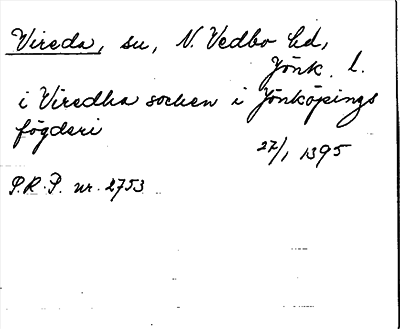 Vireda, sn, N. Vedbo hd,
Jönk. l.
i Viredha socken i Jönköpings
fögderi
27/1 1395
P.R.P. nr. 2753